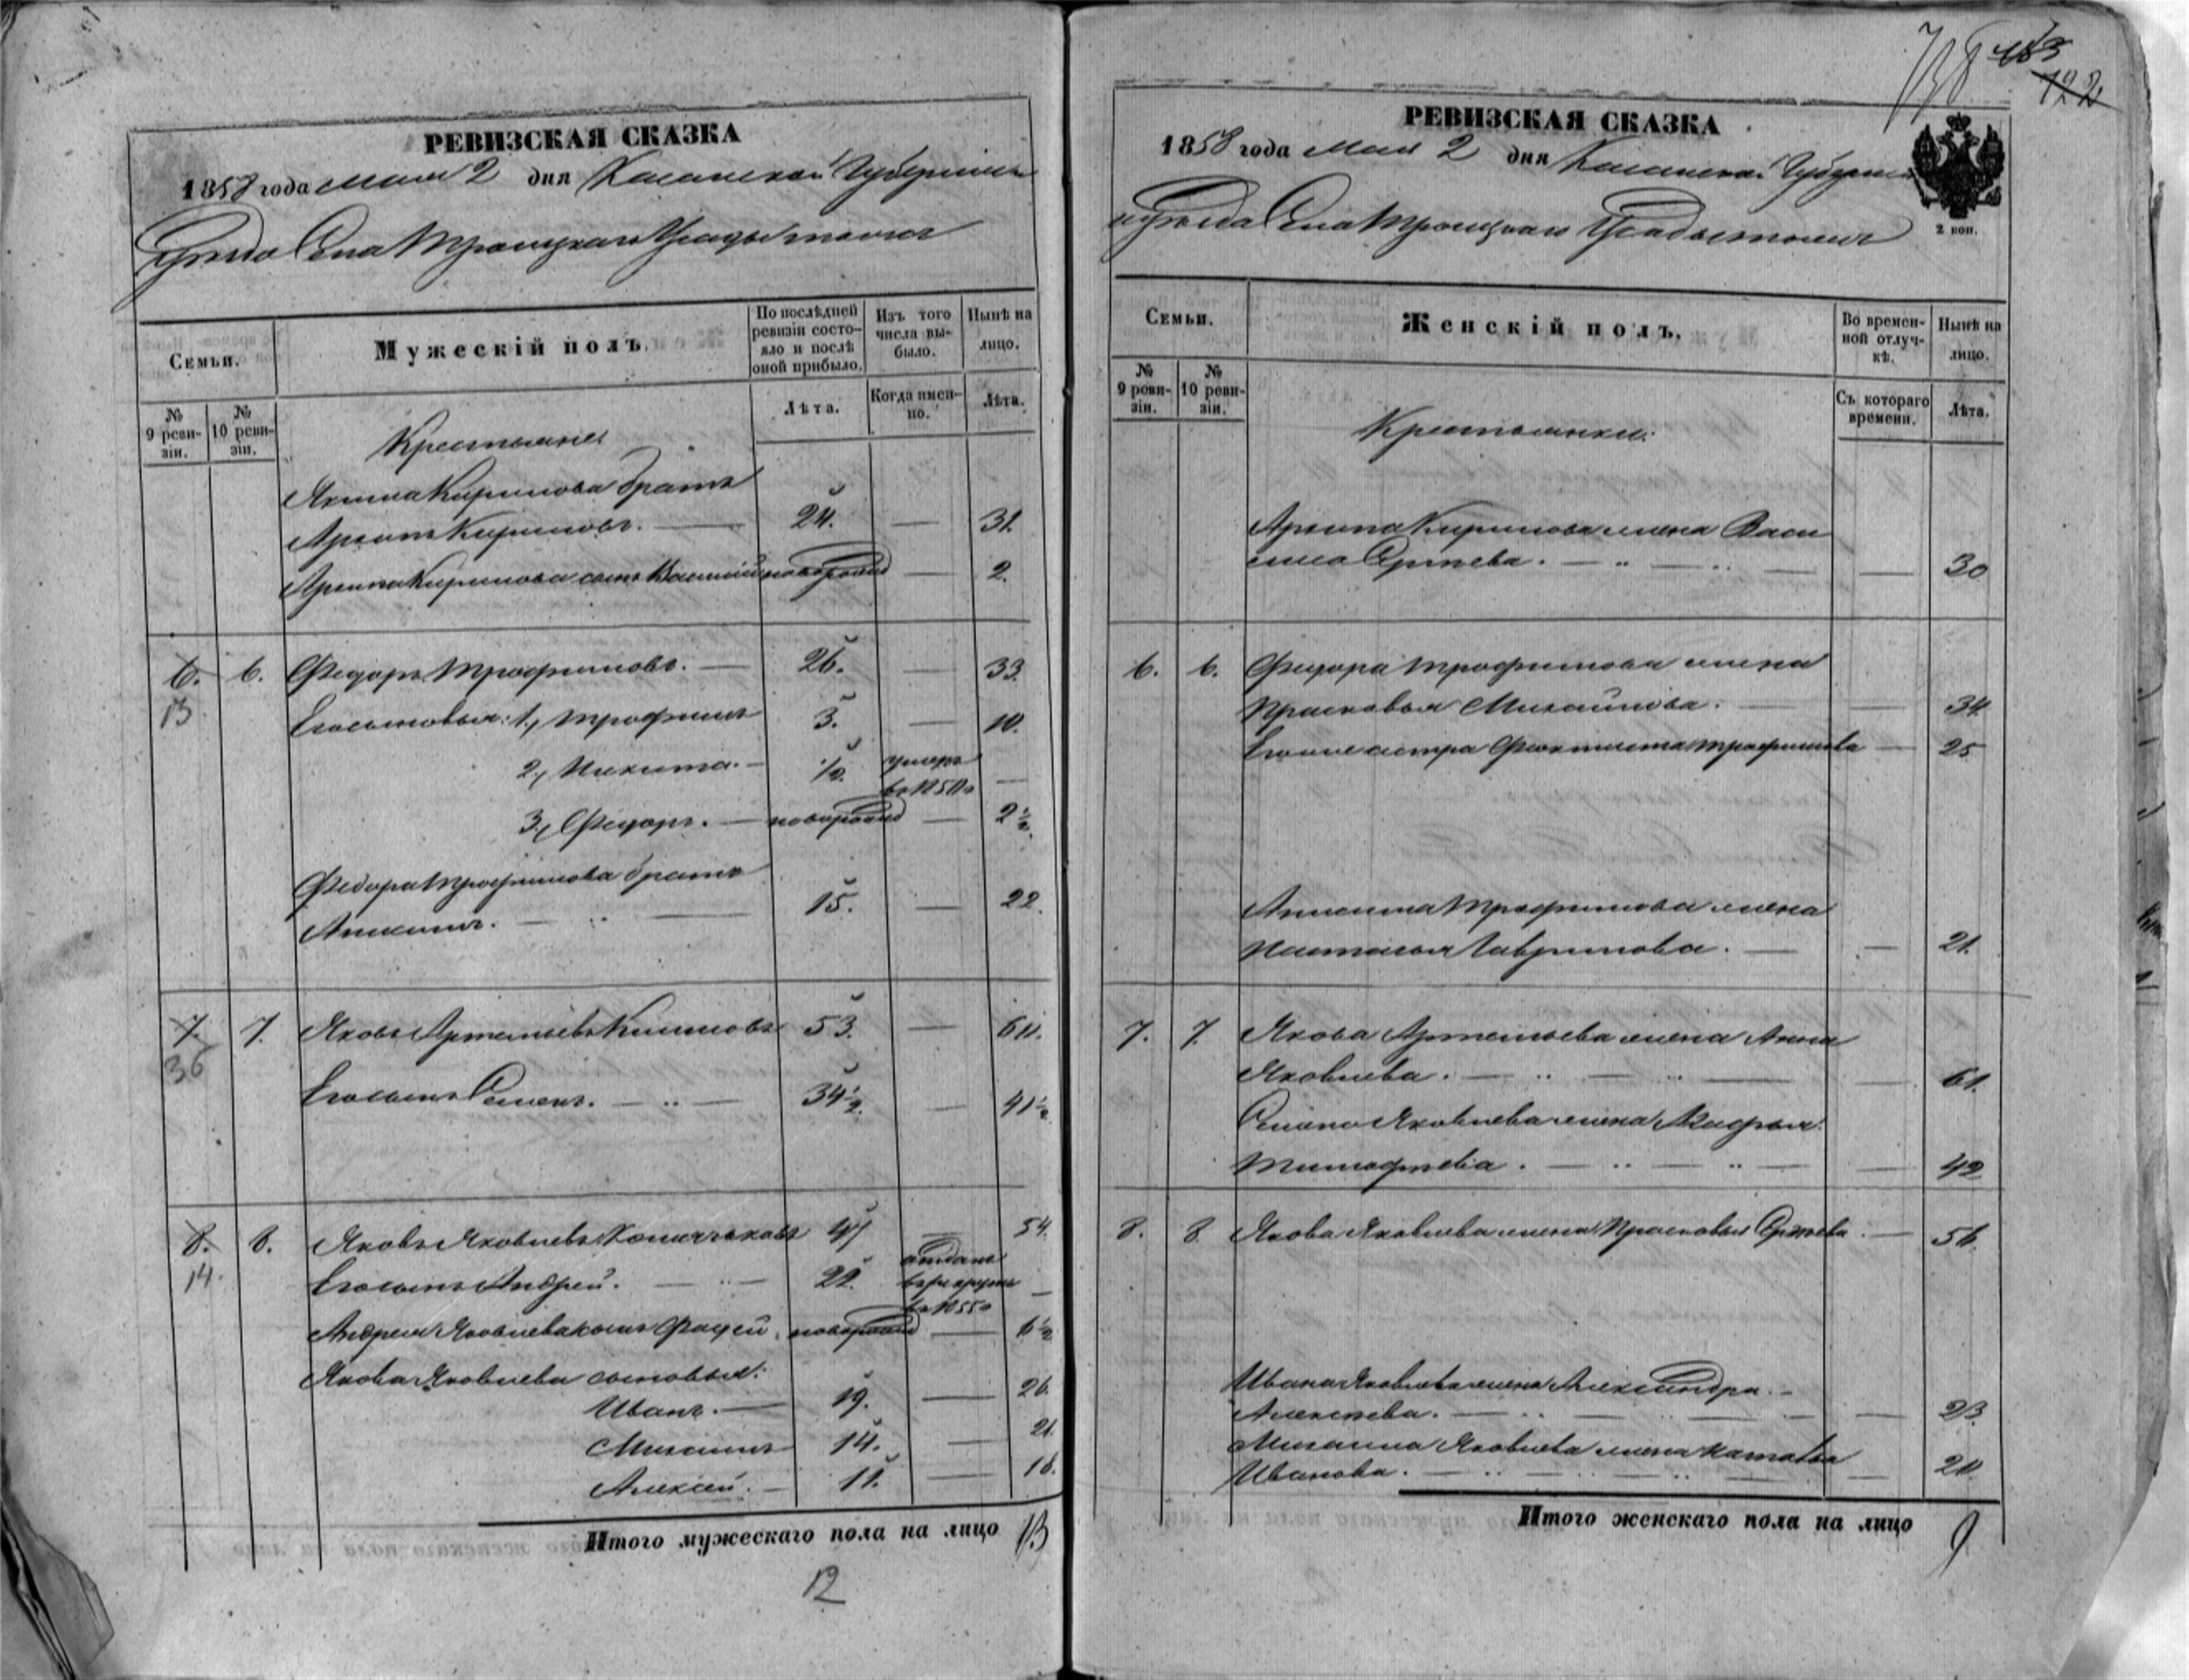 РЕВИЗСКАЯ СКАЗКА
1858 года Мая 2 дня Казанской Губернии
Уезда Села Троицкаго
По послѣдней ревизіи состояло и послѣ оной прибыло.
Изъ того числа выбыло.
Нынѣ на лицо.
Семьи.
Мужескій полъ.
№ 9 ревизіи.
№ 10 ревизіи.
Лѣта.
Когда именно.
Лѣта.
Крестьяне
Якима Кирилова братъ
Архипъ Кириловъ. 24. — 31.
Архипа Кирилова сынъ Василій новорожд — 2.
6. 6. Федоръ Трофимовъ. — 26. — 33.
13
Его сыновья: 1, Трофимъ 3. — 10.
2, Никита. — 1/2. умеръ
въ 1851 —
3, Федоръ. — новорожд — 2 1/2.
Федора Трофимова братъ
Анисимъ. 15. — 22.
7. 7. Яковъ Артемьевъ Климовъ 53. — 60.
36
Его сынъ Семенъ. 34 1/2. — 41 1/2
8. 8. Яковъ Яковлевъ 47 — 54.
14.
Его сынъ Андрей. 22. отданъ
въ рекруты
въ 1855 —
Андрея Яковлева сынъ Фадей новорожд — 6 1/2
Якова Яковлева сыновья:
Иванъ. — 19. — 26.
Михаилъ 14. — 21.
Алексей. — 11. — 18.
Итого мужескаго пола на лицо 13
12
463
122
РЕВИЗСКАЯ СКАЗКА
1858 года Мая 2 дня Казанской Губернии
уезда Села Троицкаго
2 коп.
Семьи.
Женскій полъ.
Во временной отлучкѣ.
Нынѣ на лицо.
№ 9 ревизіи.
№ 10 ревизіи.
Съ котораго времени.
Лѣта.
Крестьянки:
Архипа Кирилова жена Васи
лиса Сергѣева. — 30
6. 6. Федора Трофимова жена
Прасковья Михайлова. — 34.
Его же сестра Феоктиста Трофимова — 25
Анисима Трофимова жена
Настасья Гаврилова. — 21.
7. 7. Якова Артемьева жена Анна
Яковлева. — 61.
Семена Яковлева жена Мафрья
Тимофѣева. — 42
8. 8. Якова Яковлева жена Прасковья Сергѣева. — 56.
Ивана Яковлева жена Александра
Алексѣева. — 23.
Михаила Яковлева жена Наталья
Иванова. — 20
Итого женскаго пола на лицо 9